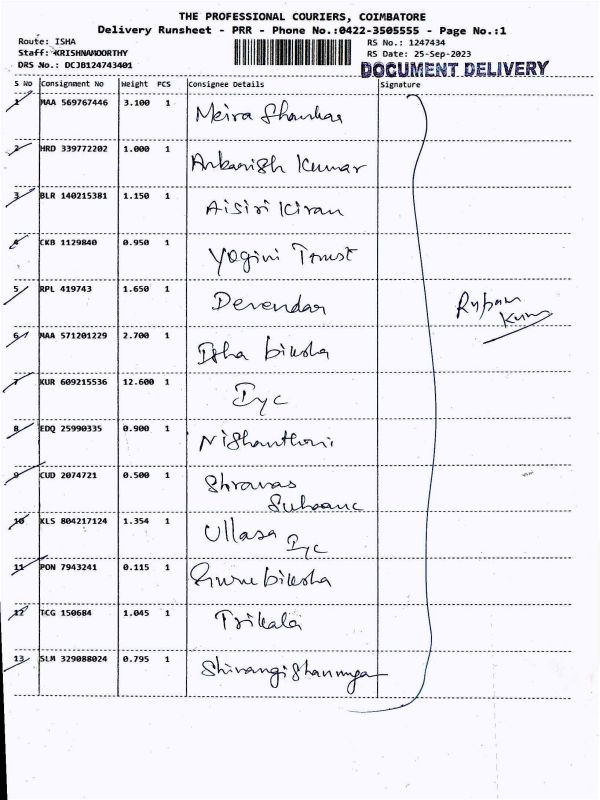 THE PROFESSIONAL COURIERS, COIMBATORE
Delivery Runsheet - PRR - Phone No.:0422-3505555 - Page No.:1
Route: ISHA RS No.: 1247434
Staff: KRISHNAMOORTHY RS Date: 25-Sep-2023
DRS No.: DCJB124743401 DOCUMENT DELIVERY
S No Consignment No Weight PCS Consignee Details Signature
1 MAA 569767446 3.100 1 Meira Shankar
2 HRD 339772202 1.000 1 Ankarish Kumar
3 BLR 140215381 1.150 1 Aisiri Kiran
4 CKB 1129840 0.950 1 Yogini Trust
5 RPL 419743 1.650 1 Devendar
Rupam
Kum
6 MAA 571201229 2.700 1 Isha biksha
7 KUR 609215536 12.600 1 Iyc
8 EDQ 25990335 0.900 1 Nishanthini
9 CUD 2074721 0.500 1 Shravas
10 KLS 804217124 1.354 1 Ullasa Iyc
11 PON 7943241 0.115 1 Guru biksha
12 TCG 150684 1.045 1 Trikala
13 SLM 329088024 0.795 1 Shivangishanmuga